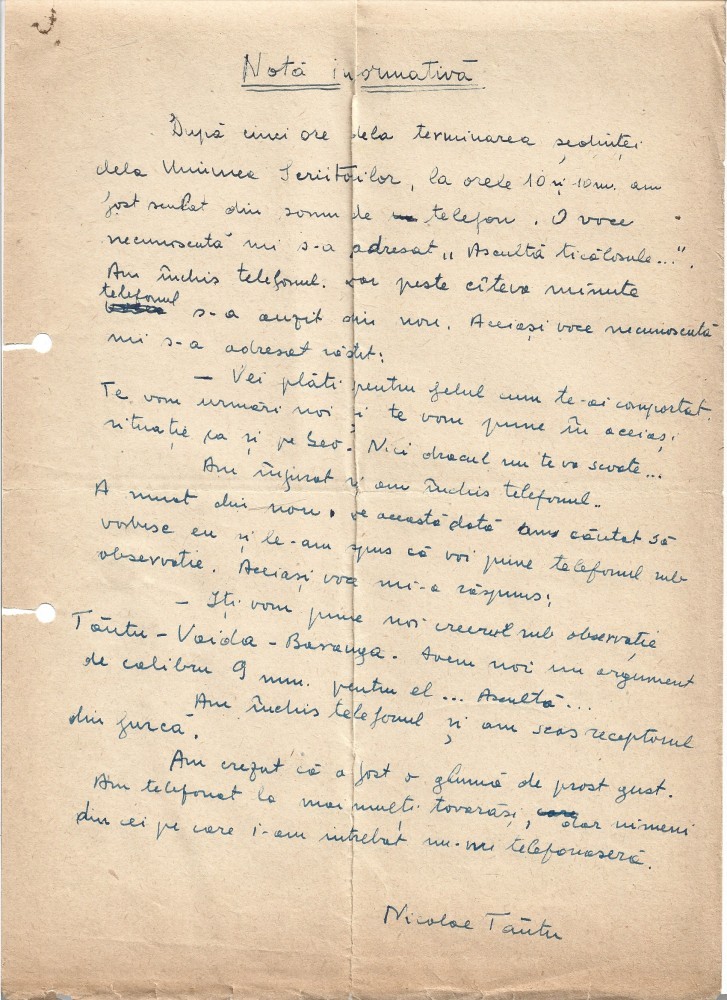 Notă informativă
După cinci ore dela terminarea ședinței
dela Uniunea Scriitoilor, la orele 10 și 10 m. am
fost sculat din somn de telefon. O voce
necunoscută mi s-a adresat „Ascultă ticălosule..."
Am închis telefonul. Iar peste cîteva minute
telefonul s-a auzit din nou. Aceiași voce necunoscută
mi s-a adresat răstit:
— Vei plăti pentru felul cum te-ai comportat.
Te vom urmări noi și te vom pune în aceiași
situație ca și pe Geo. Nici dracul nu te va scoate...
Am înjurat și am închis telefonul..
A sunat din nou. De această dată am căutat să
vorbesc eu și le-am spus că voi pune telefonul sub
observație. Aceiași voce mi-a răspuns:
— Iți vom pune noi creerul sub observație
Tăutu - Voida - Baranga. Avem noi un argument
de calibru 9 mm. pentru el... Ascultă...
Am închis telefonul și am scos receptorul
din furcă.
Am crezut că a fost o glumă de prost gust.
Am telefonat la mai mulți tovarăși, dar nimeni
din cei pe care i-am întrebat nu-mi telefonaseră.
Nicolae Tăutu